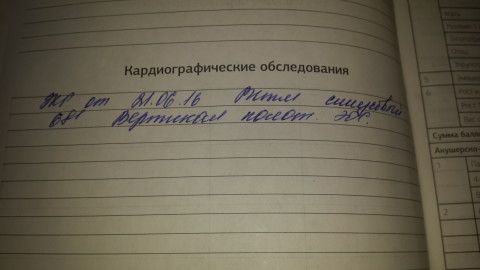 Кардиографические обследования
ЭКГ от 21.06.16 Ритм синусовый
68' Вертикал полож. ЭОС.
Рост
Вес
Сумма балл
Акушерско-
2